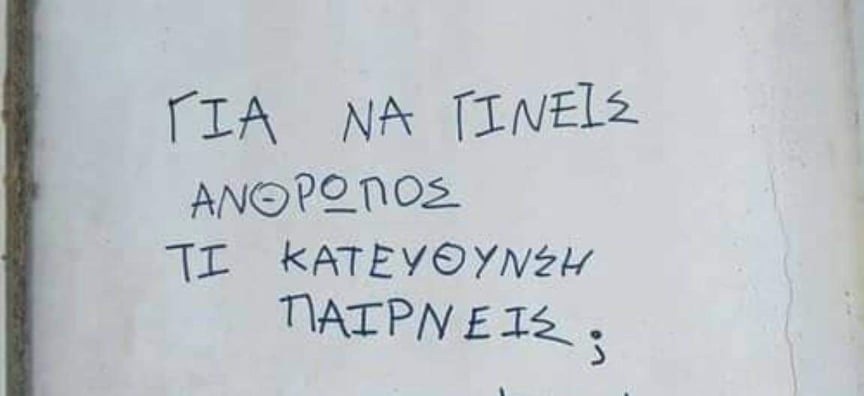 ΓΙΑ ΝΑ ΓΙΝΕΙΣ
ΑΝΘΡΩΠΟΣ
ΤΙ ΚΑΤΕΥΘΥΝΣΗ
ΠΑΙΡΝΕΙΣ;